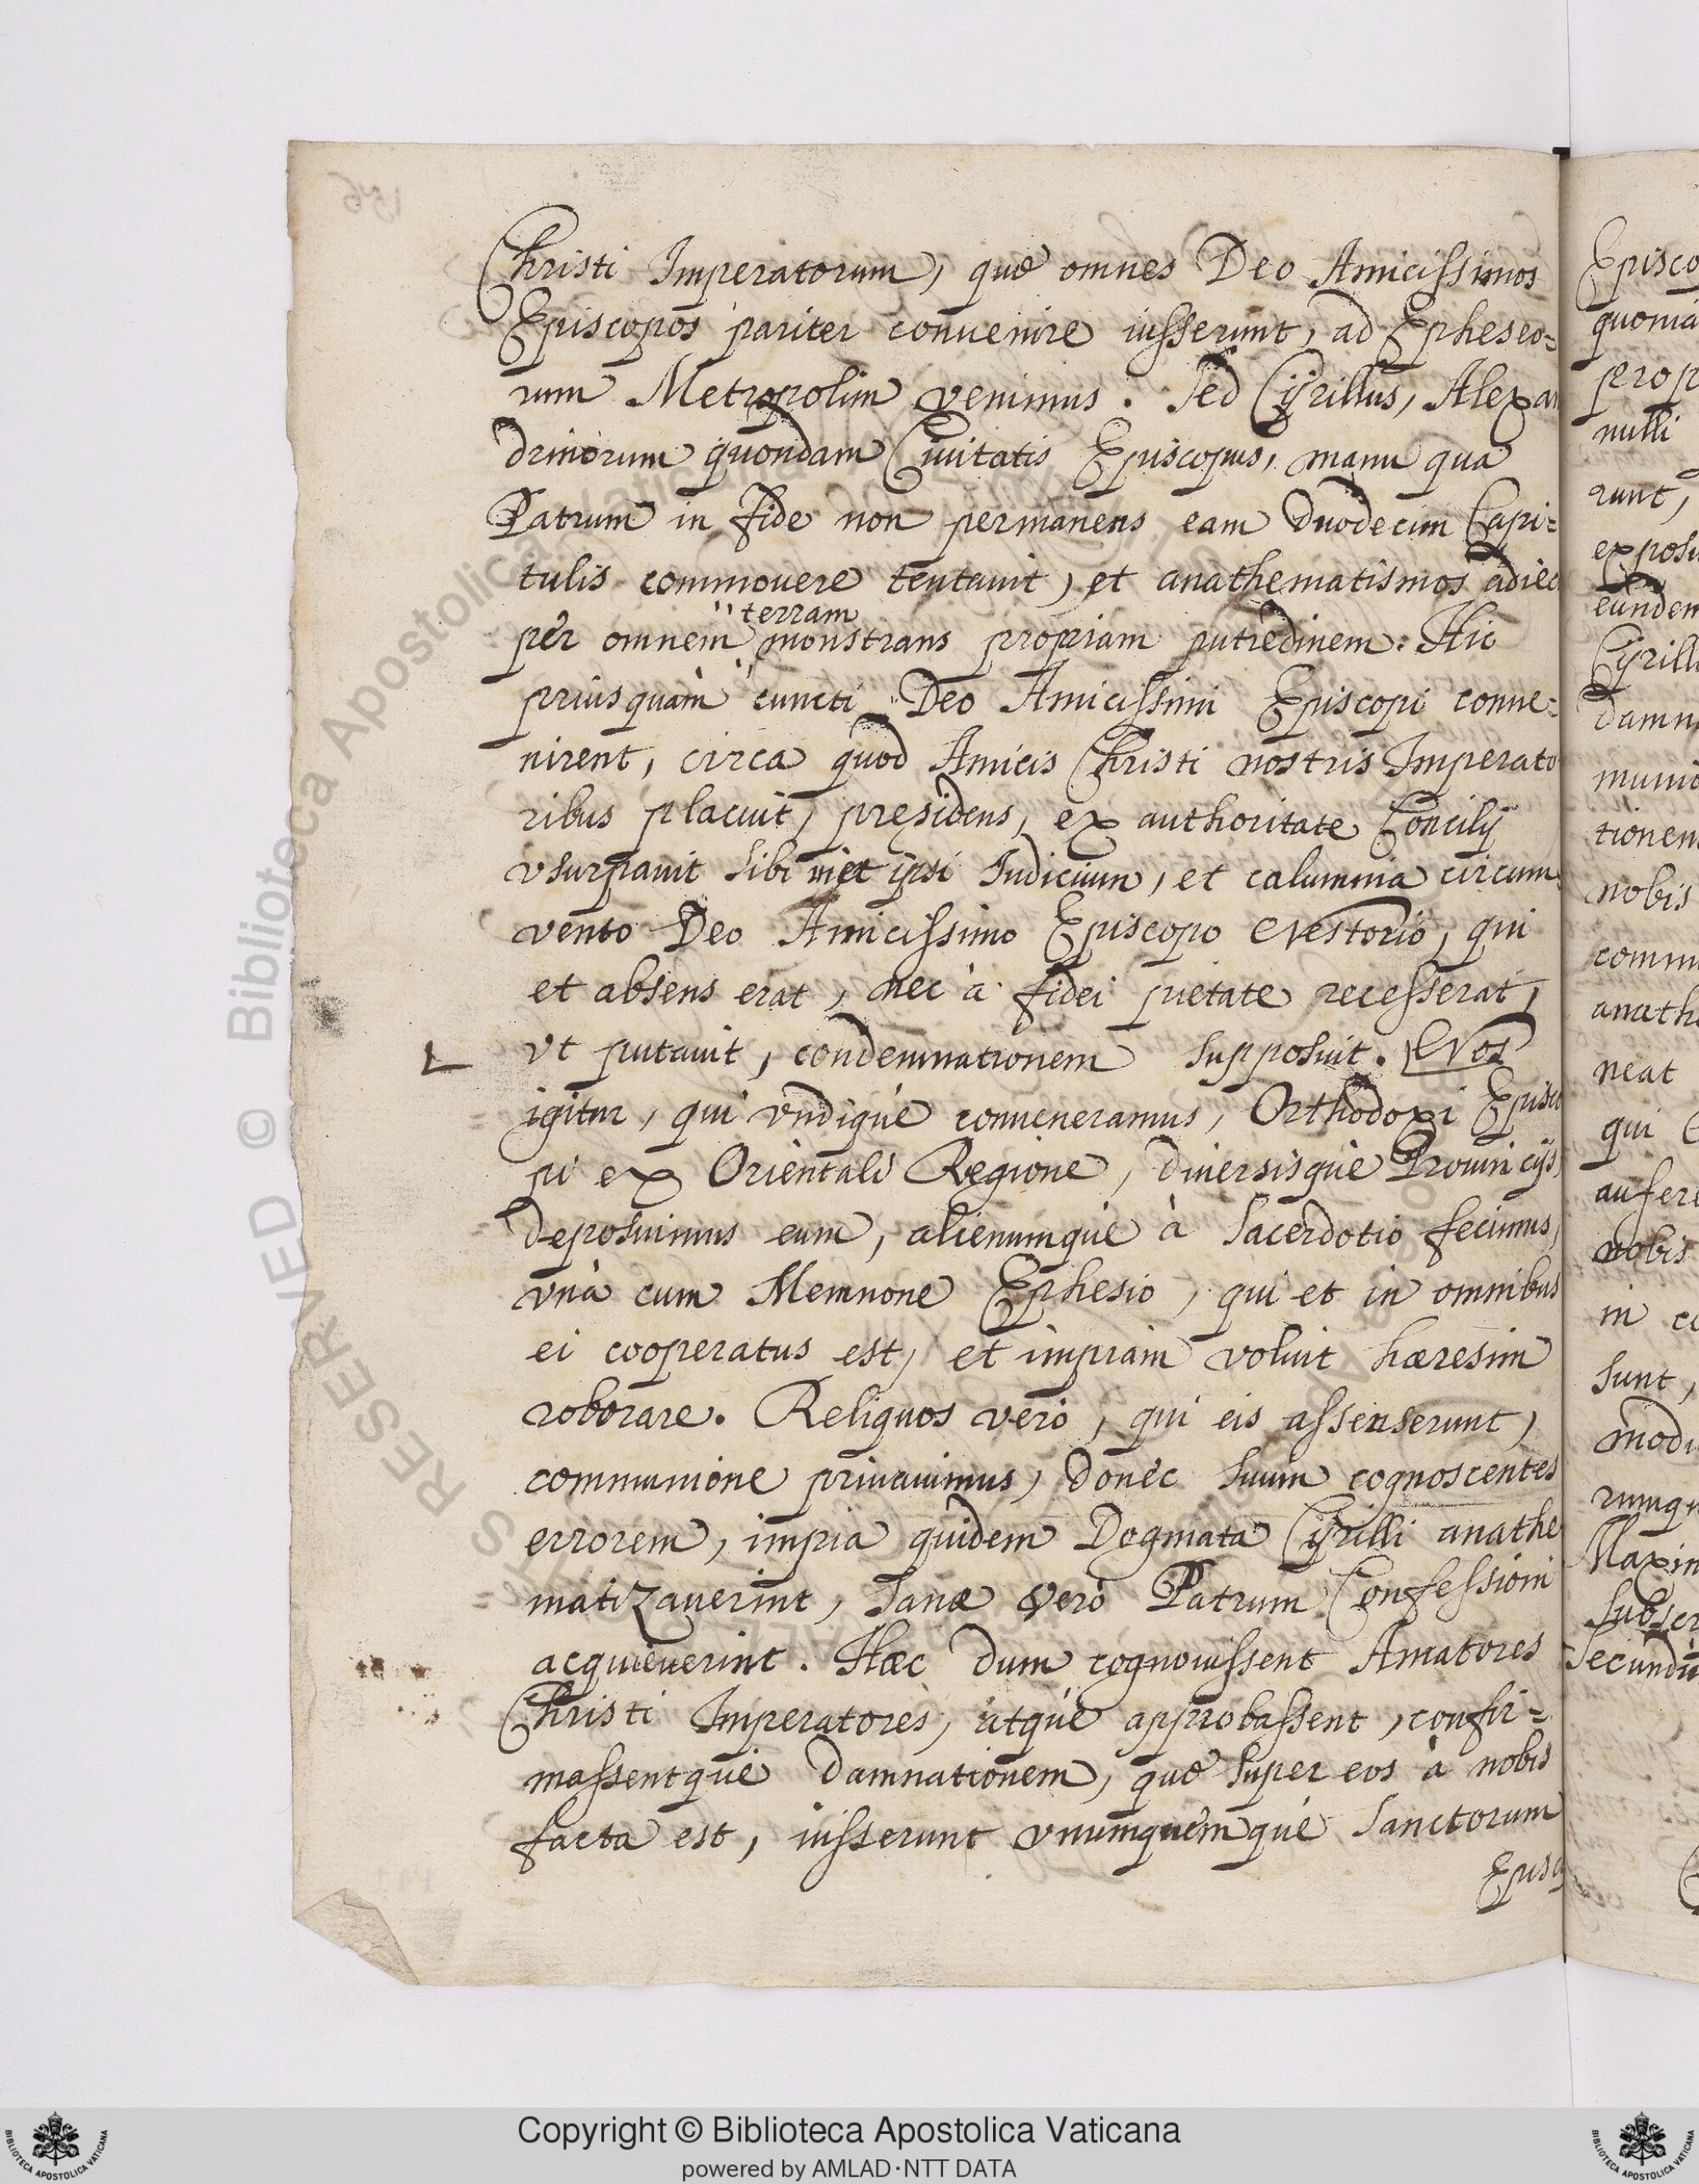 Christi Imperatorum, quæ omnes Deo Amicissimos
Episcopos pariter conuenire iusserunt, ad Epheseo=
rum Metropolim venimus. Sed Cyrillus, Alexan
drinorum quondam Ciuitatis Episcopus, manu qua
Patrum in fide non permanens eam duodecim Capi=
tulis commouere tentauit, et anathematismos adiec
terram
per omnem monstrans propriam putredinem. Hic
priusquàm cuncti Deo Amicissimi Episcopi conue=
nirent, circa quod Amicis Christi nostris Imperato
ribus placuit, presidens, ex authoritate Concilij
vsurpauit sibi met ipsi Iudicium, et calumnia circum=
vento Deo Amicissimo Episcopo Nestorio, qui
et absens erat, nec à fidei pietate recesserat,
vt putauit, condemnationem supposuit. Nos
igitur, qui vndiq́ue conueneramus, Orthodoxi Episco
pi ex Orientali Regione, diuersisq́ue Prouincijs,
deposuimus eum, alienumq́ue à Sacerdotio fecimus,
vnà cum Memnone Ephesio, qui et in omnibus
ei cooperatus est, et impiam voluit hæresim
roborare. Reliquos verò, qui eis assenserunt,
communione priuauimus, donec suum cognoscentes
errorem, impia quidem Dogmata Cyrilli anathe
matizauerint, sanæ verò Patrum Confessioni
acquieuerint. Hæc dum cognouissent Amatores
Christi Imperatores, atq́ue approbassent, confir=
massentq́ue damnationem, quæ super eos à nobis
facta est, iusserunt vnumquemq́ue Sanctorum
Episco
Episco
quonia
prop
nulli
runt,
exposu
eundem
Cyrill
damn
munio
tionem
nobis
commu
anath
neat
qui
aufere
nobis
in co
sunt,
modu
rumqu
Maxim
subscr
Secundù
© Biblioteca Apostolica Vaticana
RESERVED
Copyright © Biblioteca Apostolica Vaticana
powered by AMLAD·NTT DATA
BIBLIOTECA APOSTOLICA VATICANA
BIBLIOTECA APOSTOLICA VATICANA